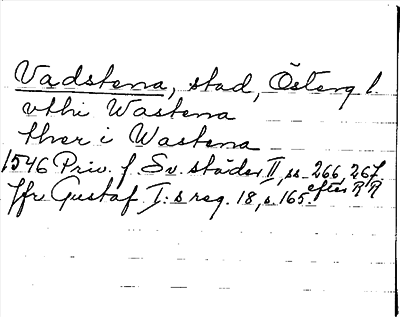 Vadstena, stad, Österg l.
vthi Wastena
ther i Wastena
1546 Priv. f. Sv. städer II, ss 266, 267.
efter RR
Jfr Gustaf I:s reg. 18, s. 165.